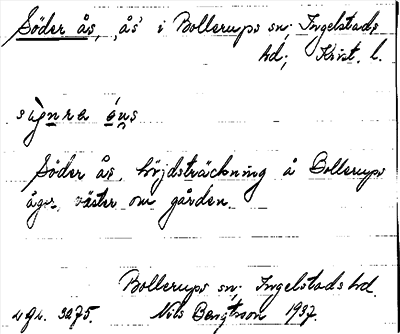 Söder ås, ,ås' i Bollerups sn; Ingelstads
hd; Krist. l.
sỳnra ́aus
Söder ås, höjdsträckning å Bollerups
ägor, väster om gården.
Bollerups sn; Ingelstads hd.
Nils Bengtsson 1937.
acc. 3275.